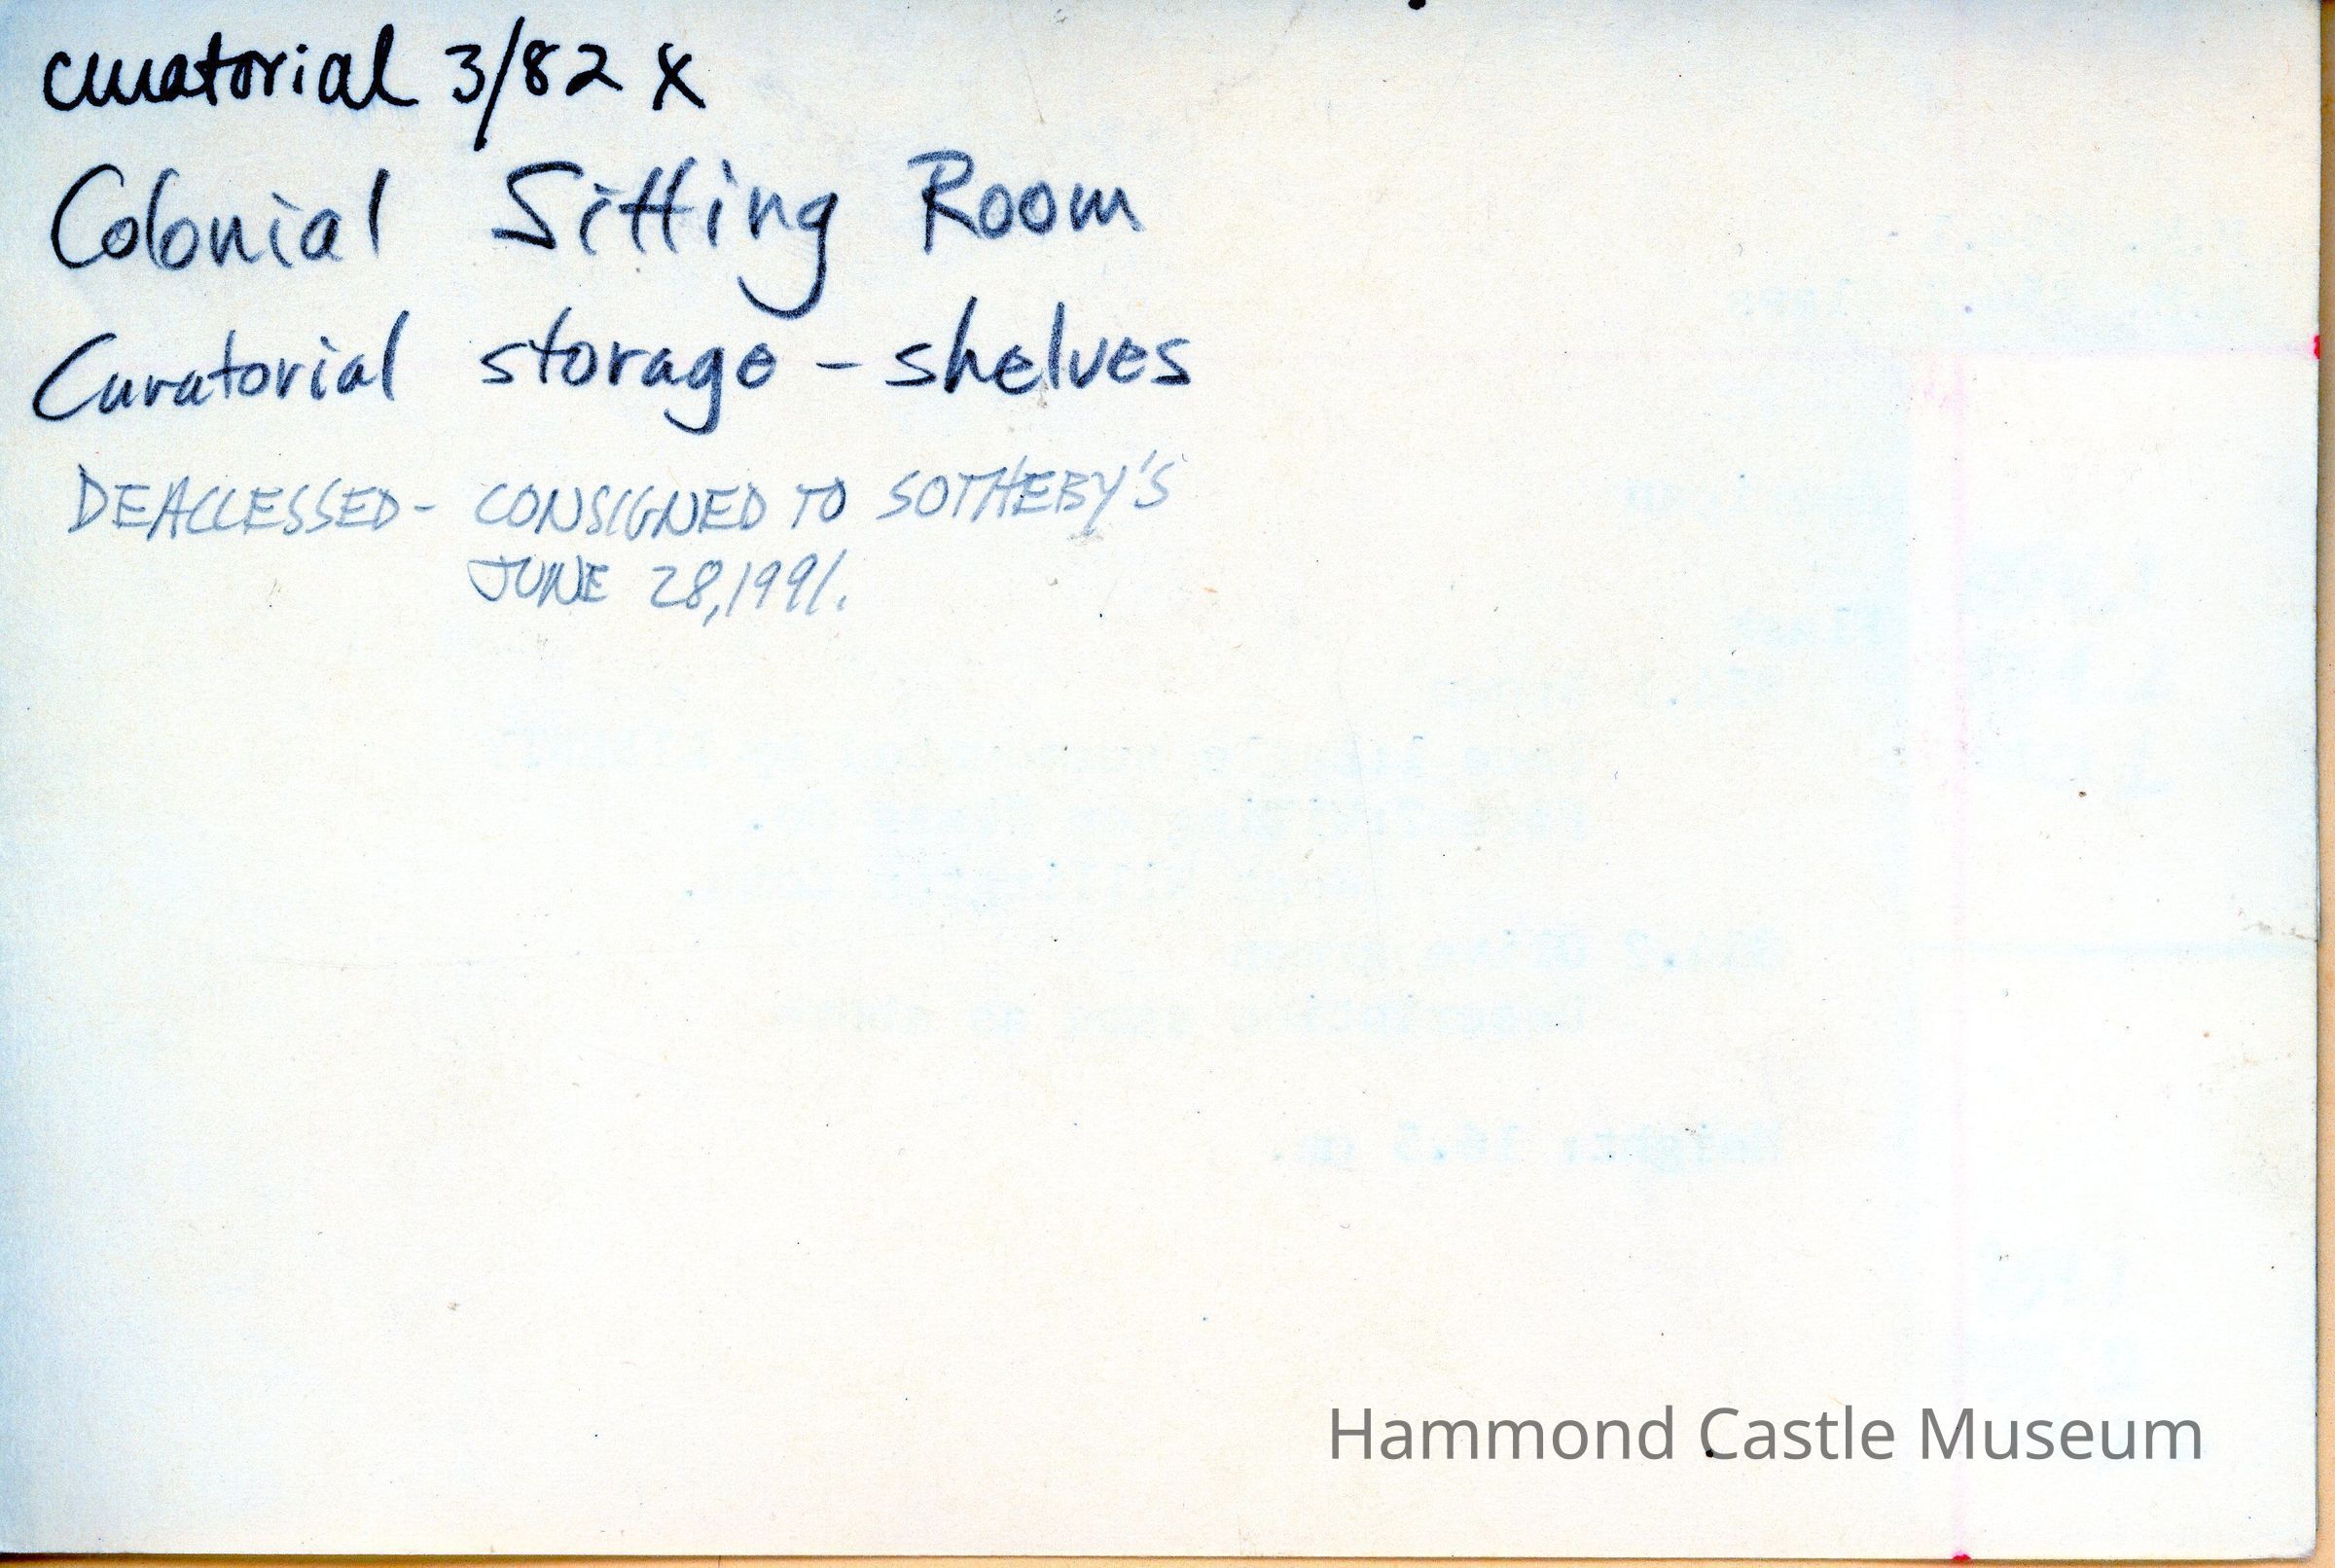 curatorial 3/82 X
Colonial Sitting Room
Curatorial storage – shelves
DEACCESSED- CONSIGNED TO SOTHEBY'S
JUNE 28, 1991.
Hammond Castle Museum